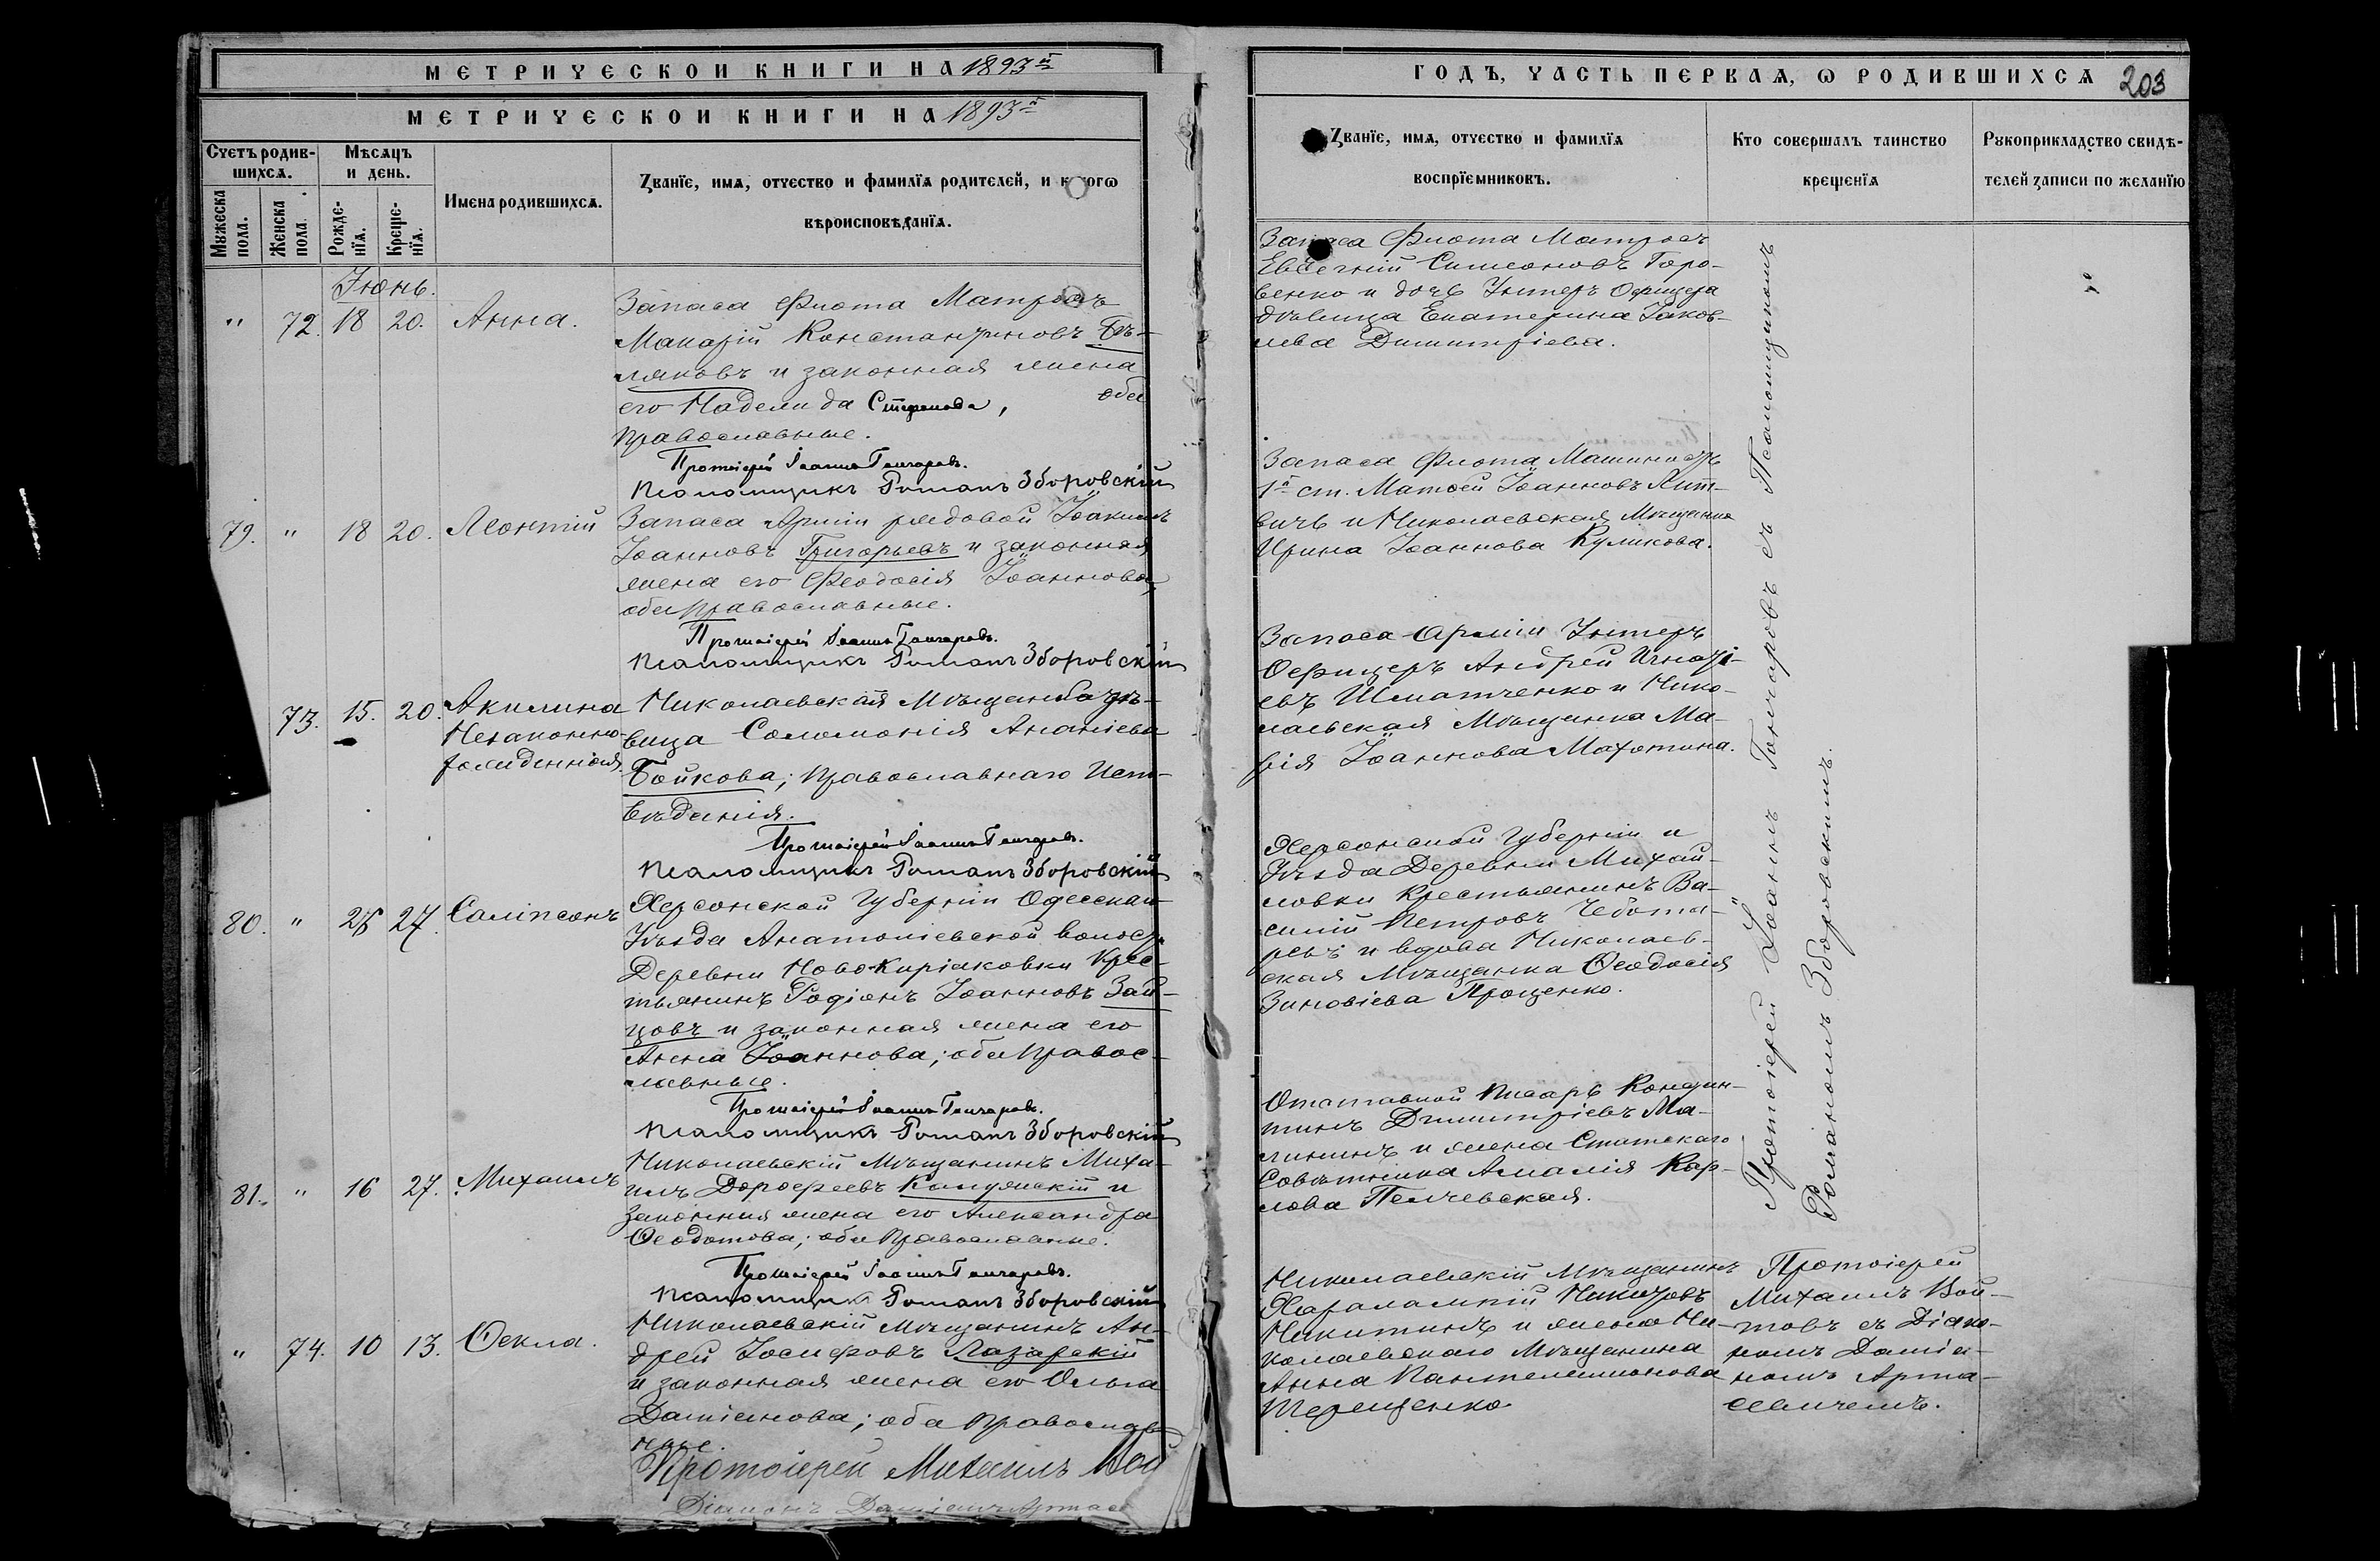 МЕТРИЧЕСКОЙ КНИГИ НА 1893й
МЕТРИЧЕСКОЙ КНИГИ НА 1893й
Счетъ родив-
шихся.
Мѣсяцъ
и день.
Мужеска
пола.
Женска
пола.
Рожде-
нїя.
Креще-
нїя.
Имена родившихся.
Званїе, имя, отчество и фамилїя родителей, и
вѣроисповѣданїя.
Іюнь.
" 72. 18 20. Анна.
Запаса Флота Матросъ
Макарій Константиновъ Бѣ-
ляковъ и законная жена
его Надежда Стефанова, оба
православные.
Протоіерей Іоаннъ Гончаровъ.
Псаломщикъ Романъ Зборовскій
79. " 18 20. Леонтій
Запаса Арміи рядовой Іоакимъ
Іоанновъ Григорьевъ и законная
жена его Феодосія Іоаннова,
оба православные.
Протоіерей Іоаннъ Гончаровъ.
Псаломщикъ Романъ Зборовскій
73. 15. 20. Акилина
Незаконно-
рожденная.
Николаевская Мѣщанка дѣ-
вица Соломонія Ананіева
Бойкова; православнаго Испо-
вѣданія.
Протоіерей Іоаннъ Гончаровъ.
Псаломщикъ Романъ Зборовскій
80. " 27. Сампсонъ
Херсонской Губерніи Одесскаго
Уѣзда Анатоліевской волости
Деревни Ново-Киріаковки Крес-
тьянинъ Родіонъ Іоанновъ Зай-
цовъ и законная жена его
Анна Іоаннова; оба Правос-
лавные.
Протоіерей Іоаннъ Гончаровъ.
Псаломщикъ Романъ Зборовскій
81. " 16 27. Михаилъ
Николаевскій Мѣщанинъ Миха-
илъ Дорофеевъ и
законная жена его Александра
Ѳеодотова; оба Православные.
Протоіерей Іоаннъ Гончаровъ.
Псаломщикъ Романъ Зборовскій
" 74. 10 13. Ѳекла.
Николаевскій Мѣщанинъ Ан-
дрей Іосифовъ Лазарскій
и законная жена его Ольга
Даміанова; оба Православ
ные.
Протоіерей Михаилъ Вой
Діаконъ Даміанъ Артас
ГОДЪ, ЧАСТЬ ПЕРВАЯ, Ѡ РОДИВШИХСЯ 203
Званїе, имя, отчество и фамилїя
воспрїемниковъ.
Кто совершалъ таинство
крещенїя
Рукоприкладство свидѣ-
телей записи по желанїю
Запаса Флота Матросъ
Евсегній Симеоновъ Горо-
венко и дочь Унтеръ Офицера
дѣвица Екатерина Іаков-
лева Димитріева.
Запаса Флота Машинистъ
1й ст. Матѳей Іоанновъ Лит-
вичъ и Николаевская Мѣщанка
Ирина Іоаннова Куликова.
Запаса Арміи Унтеръ
Офицеръ Андрей Игнаті-
евъ Шматченко и Нико-
лаевская Мѣщанка Ма-
рія Іоаннова Махотина.
Херсонской Губерніи и
Уѣзда Деревни Михай-
ловки Крестьянинъ Ва-
силій Петровъ Чебота-
ревъ и вдова Николаев-
ская Мѣщанка Ѳеодосія
Зиновіева Проценко.
Отставной Писарь Кондин-
тинъ Димитріевъ Ма-
лининъ и жена Статскаго
Совѣтника Амалія Кар-
лова Пелчевская.
Николаевскій Мѣщанинъ
Харалампій
Никитинъ и жена Ни-
колаевскаго Мѣщанина
Анна Пантелеимонова
Терещенко
Протоіерей Іоаннъ Гончаровъ съ Псаломщикомъ
Романомъ Зборовскимъ.
Протоіерей
Михаилъ Вой-
товъ съ Діако-
номъ Даміа-
номъ Арта-
севичемъ.